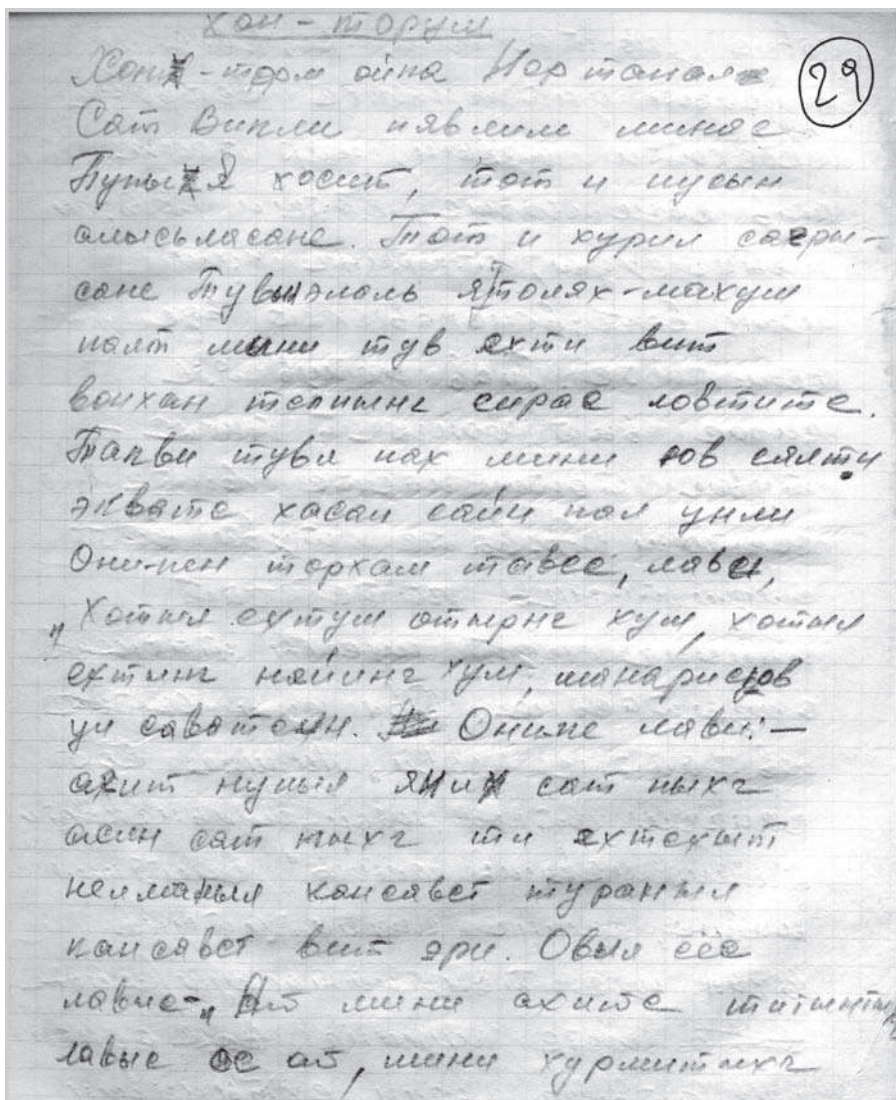 хон-торум
Хонх-торм ойка Нортанал
29
Сат Викли пявлил минас
Пупы Я хосит, тот и пусын
алысьласанс. Тот и хурил сагри-
санс Тувыл элаль я Толях-махум
палт мини тув ёхти вит
воихан тепиынг сирас ловтитс.
Такви тувл нах мини юв сялти
экватс хасал сайн пал унли
Они-пен торхам тавес, лавы,
„Хотыл ёхтум отырнг хум, хотыл
ёхтынг найинг хум, манарис юв
ул саватсын. Онипс лавы:—
акит нупыл яных сат ныхг
осин сат ныхг ти ёхтсхыт
нелманыл кансавет тураныл
кансавет вит эри. Овыл ёсс
лавыс-„ Ат мини ахитс титынты
лавыс ос ат, мини хурмитыхг